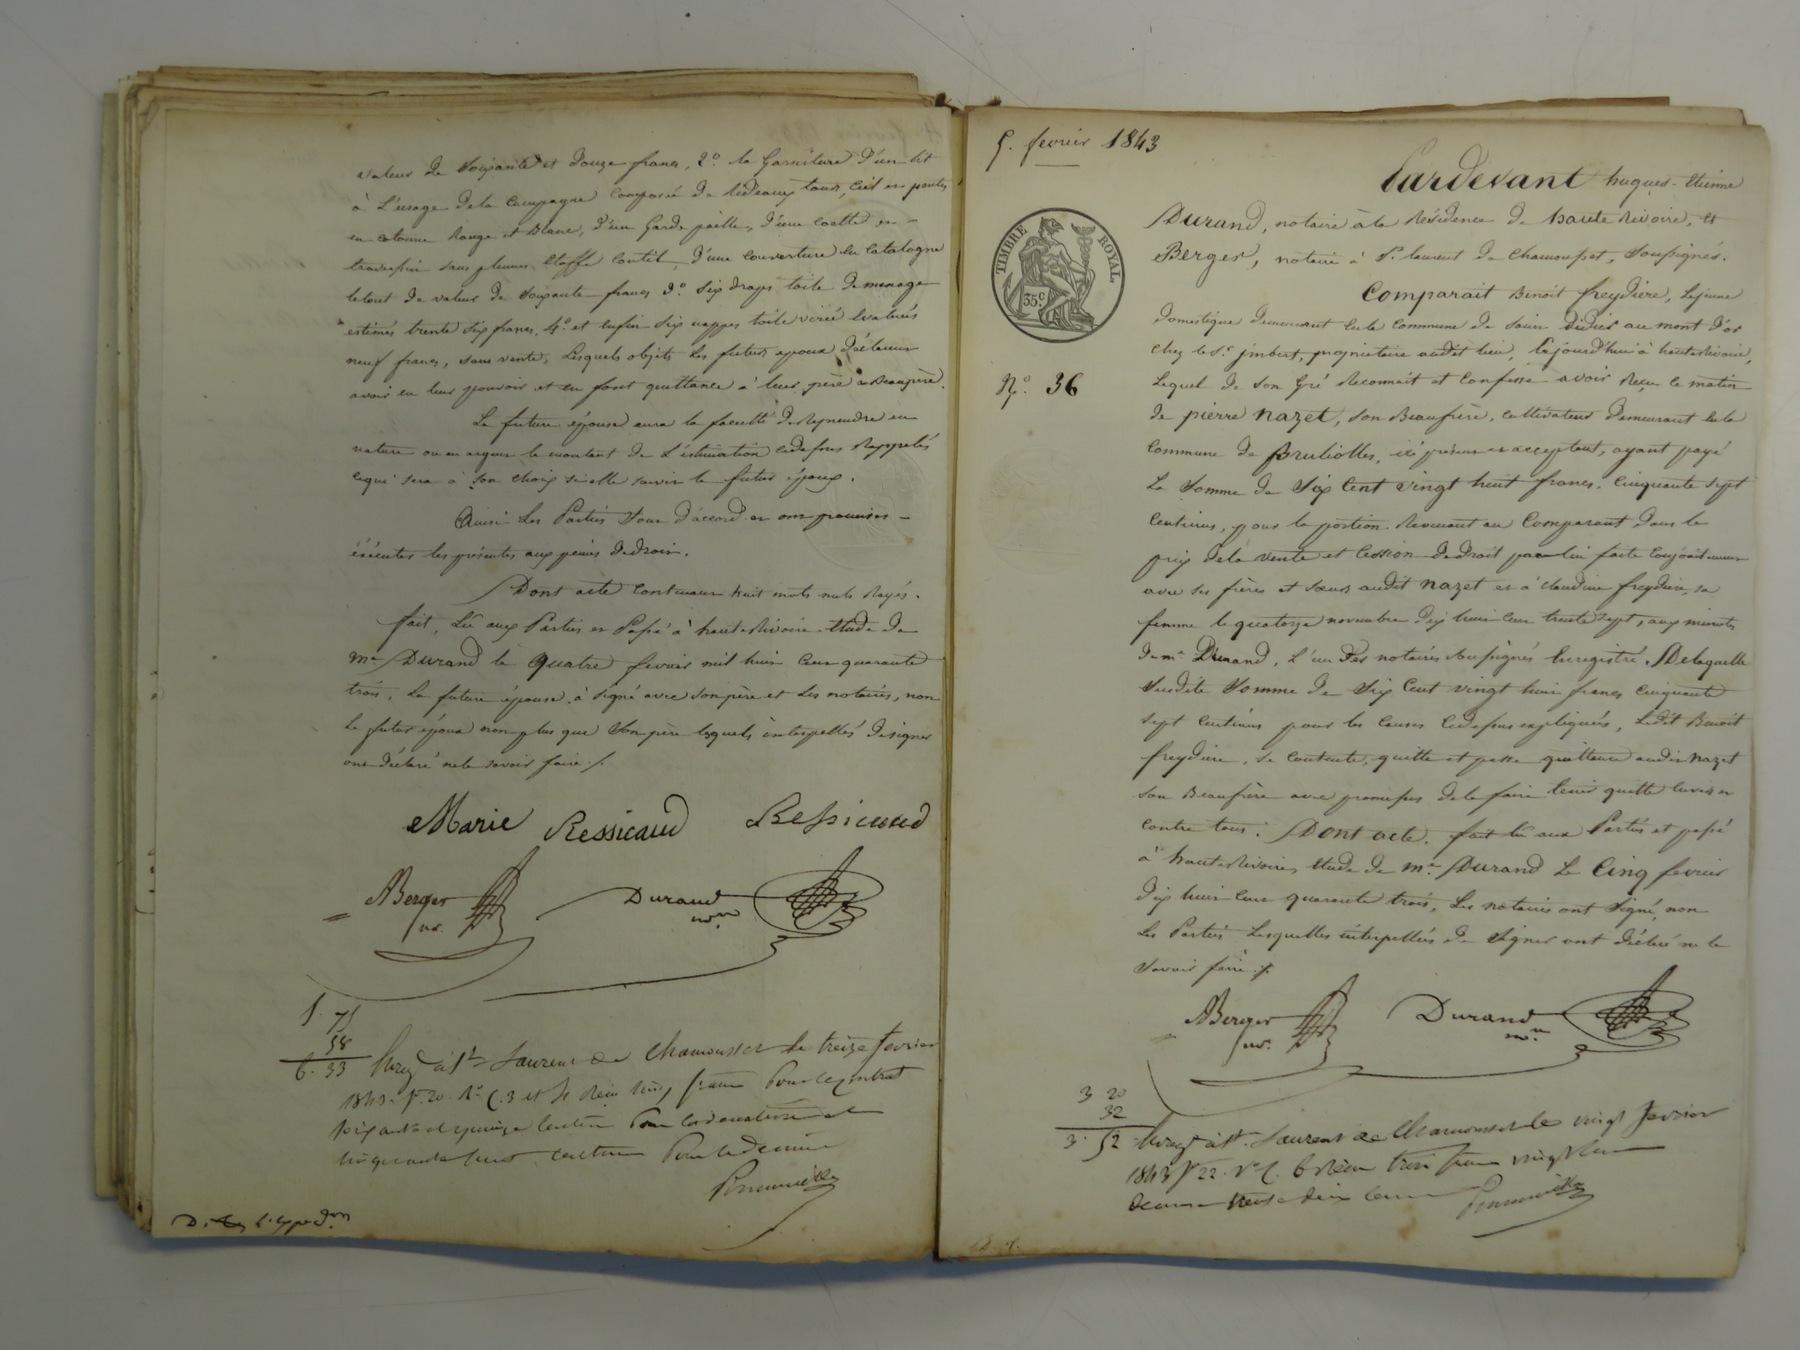 valeur de soixante et douze francs, 2º la Garniture d'un lit
à L'usage de la Campagne composée de Rideaux, tour, ciel en pentes
en cotonne Rouge et Blanc, d'un Garde paille, d'une coette et
traversin sans plumes étoffe Coutil, d'une couverture en Catalogne
le tout de valeur de soixante francs 3º six draps toile de menage
estimés trente six francs, 4º et enfin six nappes toile évalués
neuf francs, sans vente, Lesquels objets Les futurs époux déclarent
avoir en leur pouvoir et en font quittance à leur père et Beaupère.
La future épouse aura la faculté de Reprendre en
nature ou en argent le montant de L'estimation cidessus Rappelés
ce qui sera à son choix si elle survit le futur époux.
Ainsi Les Parties sont d'accord et ont promises
exécuter les présentes aux peines de droit.
Dont acte Contenant huit mots nuls Rayés.
fait, Lu aux Parties et Passé à haute Rivoire Etude de
me Durand le Quatre fevrier mil huit Cent quarante
trois, La future épouse à signé avec son père et Les notaires, non
Le futur époux non plus que Son père lesquels interpellés de signer
ont déclaré ne le savoir faire ./.
Marie Ressicaud Ressicaud
Berger Durand
nre. nre
5. 75
58
6. 33 Enregé à St Laurent de Chamousset le treize fevrier
1843 fº 20 Rº C. 3 et 4 Reçu cinq francs Pour le contrat
soixante et quinze centimes Pour la donation et
cinquante huit centimes Pour le decime
5. fevrier 1843
Pardevant hugues-Etienne
TIMBRE ROYAL
35c
Durand, notaire à la Résidence de haute Rivoire, Et
Berger, notaire à St. laurent de Chamousset, Soussignés.
Comparait Benoit freydière, Lejeune
domestique demeurant en la Commune de saint didier au mont d'or
chez le Sr jmbert, proprietaire audit lieu, Cejourd'hui à hauterivoire,
Nº. 36
Lequel de son Gré Reconnait et Confesse avoir Reçu ce matin
de pierre nazet, son Beaufrère, cultivateur demeurant en la
Commune de Brullioles, ici présent et acceptant, ayant payé
La Somme de Six Cent vingt huit francs Cinquante sept
Centimes, pour la portion Revenant au Comparant dans le
prix de la vente et Cession de droit par lui faite Conjointement
avec ses frères et sœurs audit nazet et à claudine freydière, sa
femme le quatorze novembre dix huit cent trente sept, aux minutes
de me Durand, L'un des notaires soussignés Enregistré. De laquelle
susdite Somme de Six Cent vingt huit francs Cinquante
sept Centimes pour les Causes Cidessus expliquées, Ledit Benoit
freydière, se Contente, quitte et passe quittance audit nazet
son Beaufrère avec promesses de le faire tenir quitte envers et
contre tous. Dont acte. fait lu aux Parties et passé
à haute Rivoire, Etude de me Durand Le Cinq fevrier
dix huit cent quarante trois, Les notaires ont signé, non
Les Parties Lesquelles interpellées de Signer ont déclaré ne le
savoir faire ./.
Berger Durand
nre. nre
3 20
32
3. 52 Enregé à St. Laurent de Chamousset le vingt fevrier
1843 fº 22 Vº C. 6 Reçu trois francs vingt cent
decime trente deux cent